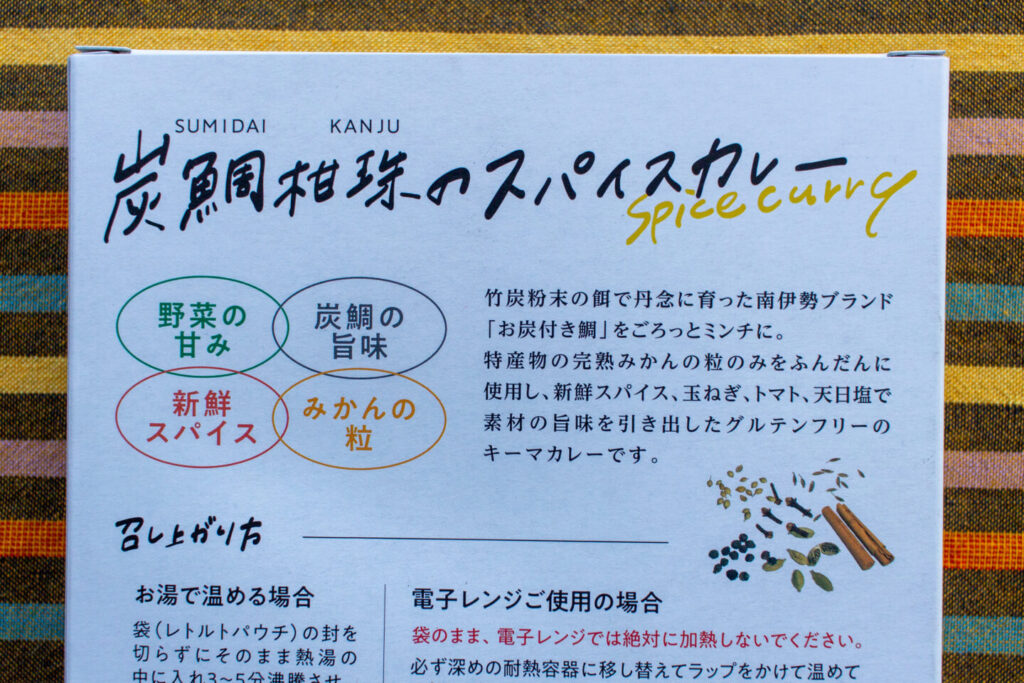 SUMIDAI KANJU
炭鯛柑珠のスパイスカレー
spice curry
野菜の
甘み
炭鯛の
旨味
新鮮
スパイス
みかんの
粒
竹炭粉末の餌で丹念に育った南伊勢ブランド
「お炭付き鯛」をごろっとミンチに。
特産物の完熟みかんの粒のみをふんだんに
使用し、新鮮スパイス、玉ねぎ、トマト、天日塩で
素材の旨味を引き出したグルテンフリーの
キーマカレーです。
召し上がり方
お湯で温める場合
袋（レトルトパウチ）の封を
切らずにそのまま熱湯の
中に入れ3〜5分沸騰させ
電子レンジご使用の場合
袋のまま、電子レンジでは絶対に加熱しないでください。
必ず深めの耐熱容器に移し替えてラップをかけて温めて